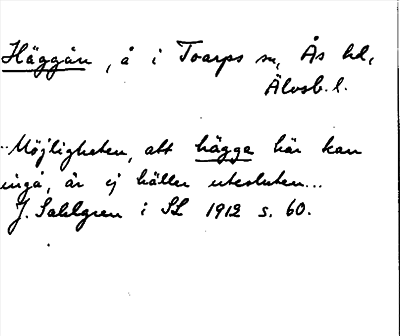 Häggån, å i Toarps sn, Ås hd,
Älvsb. l.
..Möjligheten, att hägge här kan
ingå, är ej häller utesluten...
J. Sahlgren i SL 1912 s. 60.